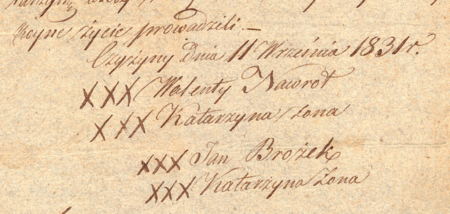 życie prowadzili. —
Czyżyny Dnia 11 Września 1831 r.
XXX Walenty Nawrot
XXX Katarzyna żona
XXX Jan Brożek
XXX Katarzyna żona